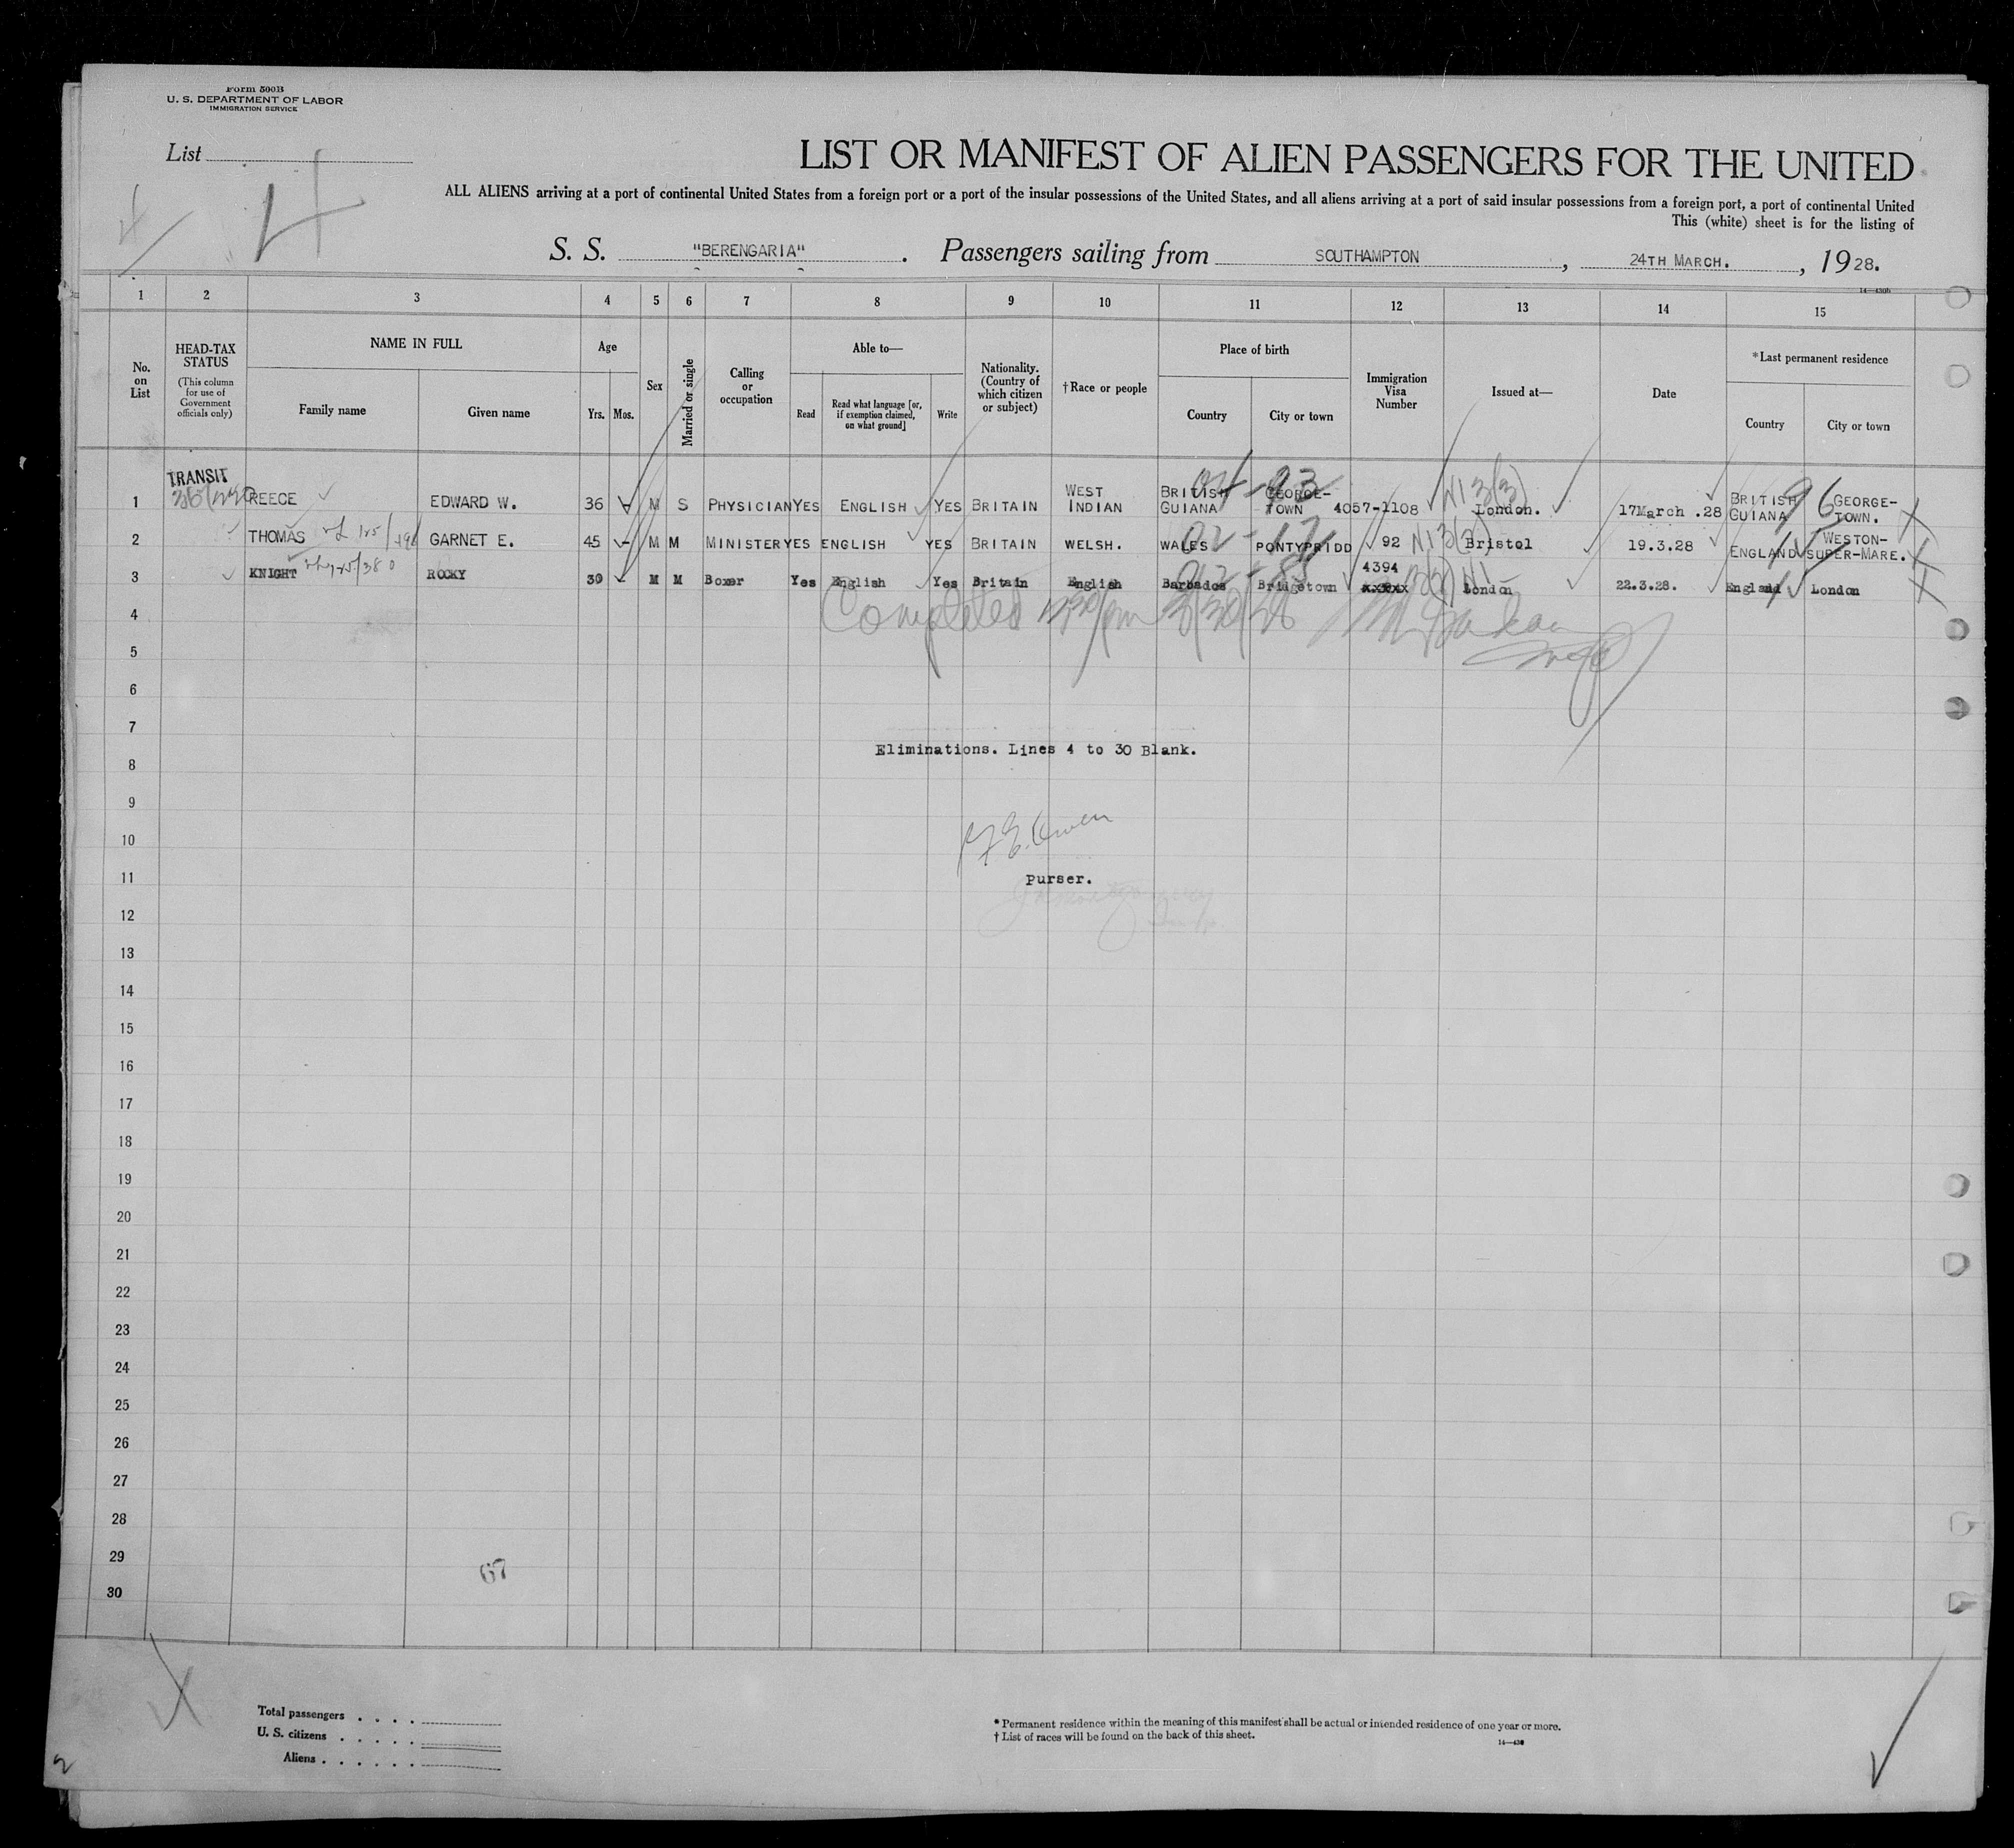 Form 500B
U. S. DEPARTMENT OF LABOR
IMMIGRATION SERVICE
List
4
LIST OR MANIFEST OF ALIEN PASSENGERS FOR THE UNITED
ALL ALIENS arriving at a port of continental United States from a foreign port or a port of the insular possessions of the United States, and all aliens arriving at a port of said insular possessions from a foreign port, a port of continental United
This (white) sheet is for the listing of
S. S. "BERENGARIA". Passengers sailing from SOUTHAMPTON, 24TH MARCH., 1928.
1 2 3 4 5 6 7 8 9 10 11 12 13 14 15
No. on List
HEAD-TAX STATUS
(This column for use of Government officials only)
NAME IN FULL
Family name Given name
Age
Yrs. Mos.
Sex
Married or single
Calling or occupation
Able to—
Read
Read what language [or, if exemption claimed, on what ground]
Write
Nationality. (Country of which citizen or subject)
†Race or people
Place of birth
Country City or town
Immigration Visa Number
Issued at—
Date
*Last permanent residence
Country City or town
TRANSIT
1 REECE EDWARD W. 36 M S PHYSICIAN YES ENGLISH YES BRITAIN WEST INDIAN BRITISH GUIANA GEORGE-TOWN 4057-1108 London. 17March .28 BRITISH GUIANA GEORGE-TOWN.
2 THOMAS GARNET E. 45 M M MINISTER YES ENGLISH YES BRITAIN WELSH. WALES PONTYPRIDD 92 Bristol 19.3.28 ENGLAND WESTON-SUPER-MARE.
3 KNIGHT ROCKY 30 M M Boxer Yes English Yes Britain English Barbados Bridgetown 4394 London 22.3.28. England London
4 Completed
5
6
7
Eliminations. Lines 4 to 30 Blank.
8
9
10
11 Purser.
12
13
14
15
16
17
18
19
20
21
22
23
24
25
26
27
28
29
67
30
Total passengers . . . .
U. S. citizens . . . . .
Aliens . . . . . .
* Permanent residence within the meaning of this manifest shall be actual or intended residence of one year or more.
† List of races will be found on the back of this sheet.
2